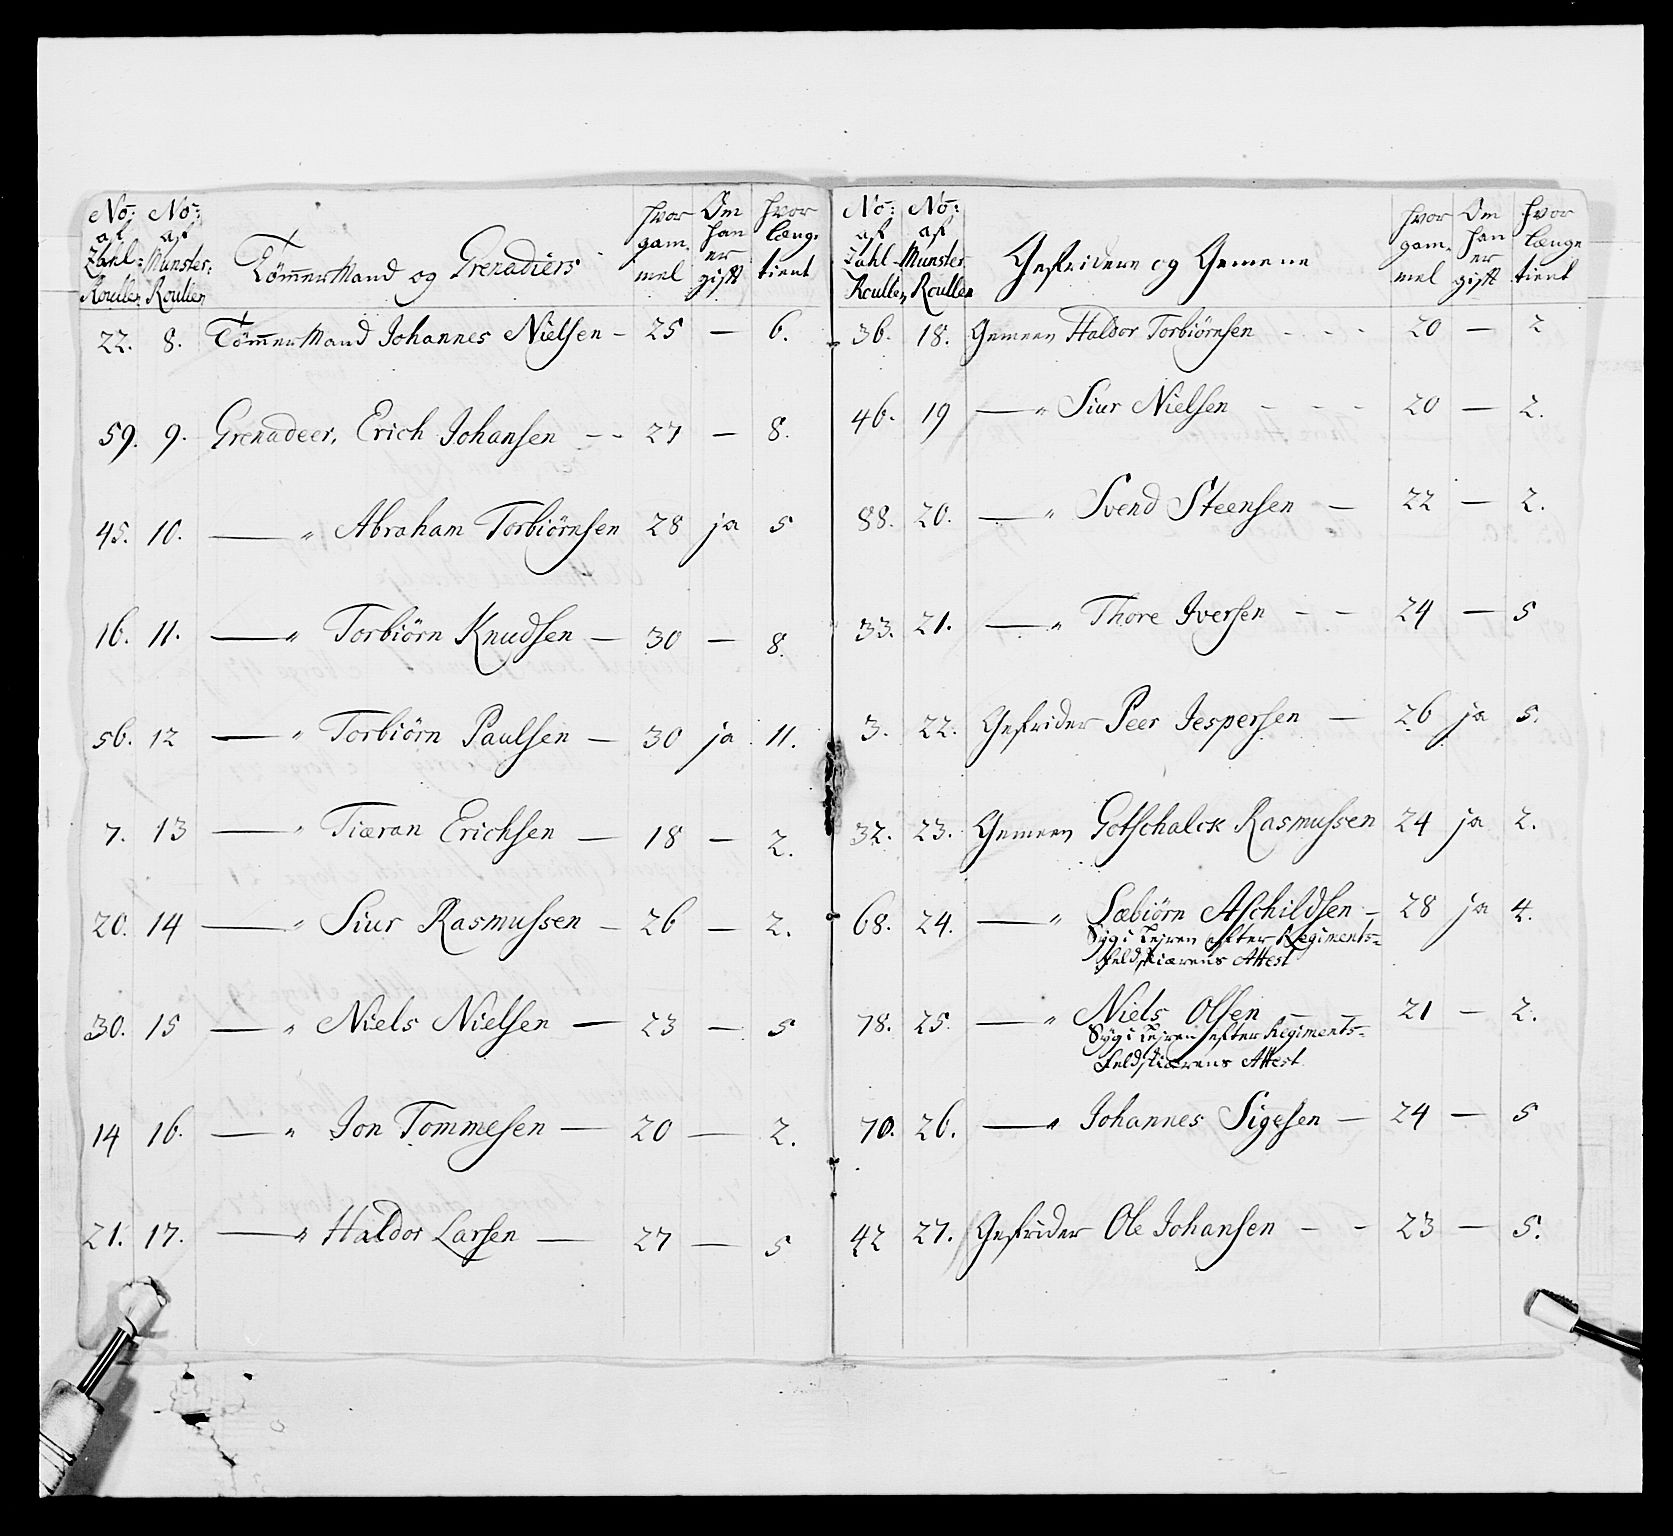 No: af Zahl-Roullen No: af Munster-Roullen Tömmermand og Grenadiers hvor gammel Om han er gift hvor længe tient
22. 8. Tömmermand Johannes Nielsen - 25 — 6.
59. 9. Grenadeer, Erich Johansen - - 27 — 8.
45. 10. —— " Abraham Torbiörnsen 28 ja 5
16. 11. —— " Torbiörn Knudsen — 30 — 8.
56. 12 —— " Torbiörn Paulsen — 30 ja 11.
7. 13 —— " Tiæran Erichsen — 18 — 2.
20. 14 —— " Siur Rasmussen — 26 — 2.
30. 15 —— " Niels Nielsen — 23 — 5
14 16. —— " Jon Tommesen — 20 — 2.
21. 17. —— " Haldor Larsen — 27 — 5
No: af Zahl-Roullen No: af Munster Roullen Gefridere og Gemene hvor gammel Om han er gift hvor længe tient
36. 18. Gemeen Haldor Torbiörnsen - - - 20 — 2
46. 19 —— " Siur Nielsen - - - 20 — 2.
88. 20. —— " Svend Steensen — 22 — 2.
33. 21. —— " Thore Iversen - - 24 — 5
3. 22. Gefrider Peer Jespersen — 26 ja 5.
32. 23. Gemeen Gotschalck Rasmussen 24 ja 2.
68. 24. —— " Sæbiörn Aschildsen - 28 ja 4.
Syg i Lejren efter Regiments-
feldskiærens Attest
78. 25. —— " Niels Olsen — — 21 — 2.
Syg i Lejren efter Regiments-
feldskiærens Attest.
70. 26. —— " Johannes Sigesen — 24 — 5
42 27. Gefrider Ole Johansen - - 23 — 5.